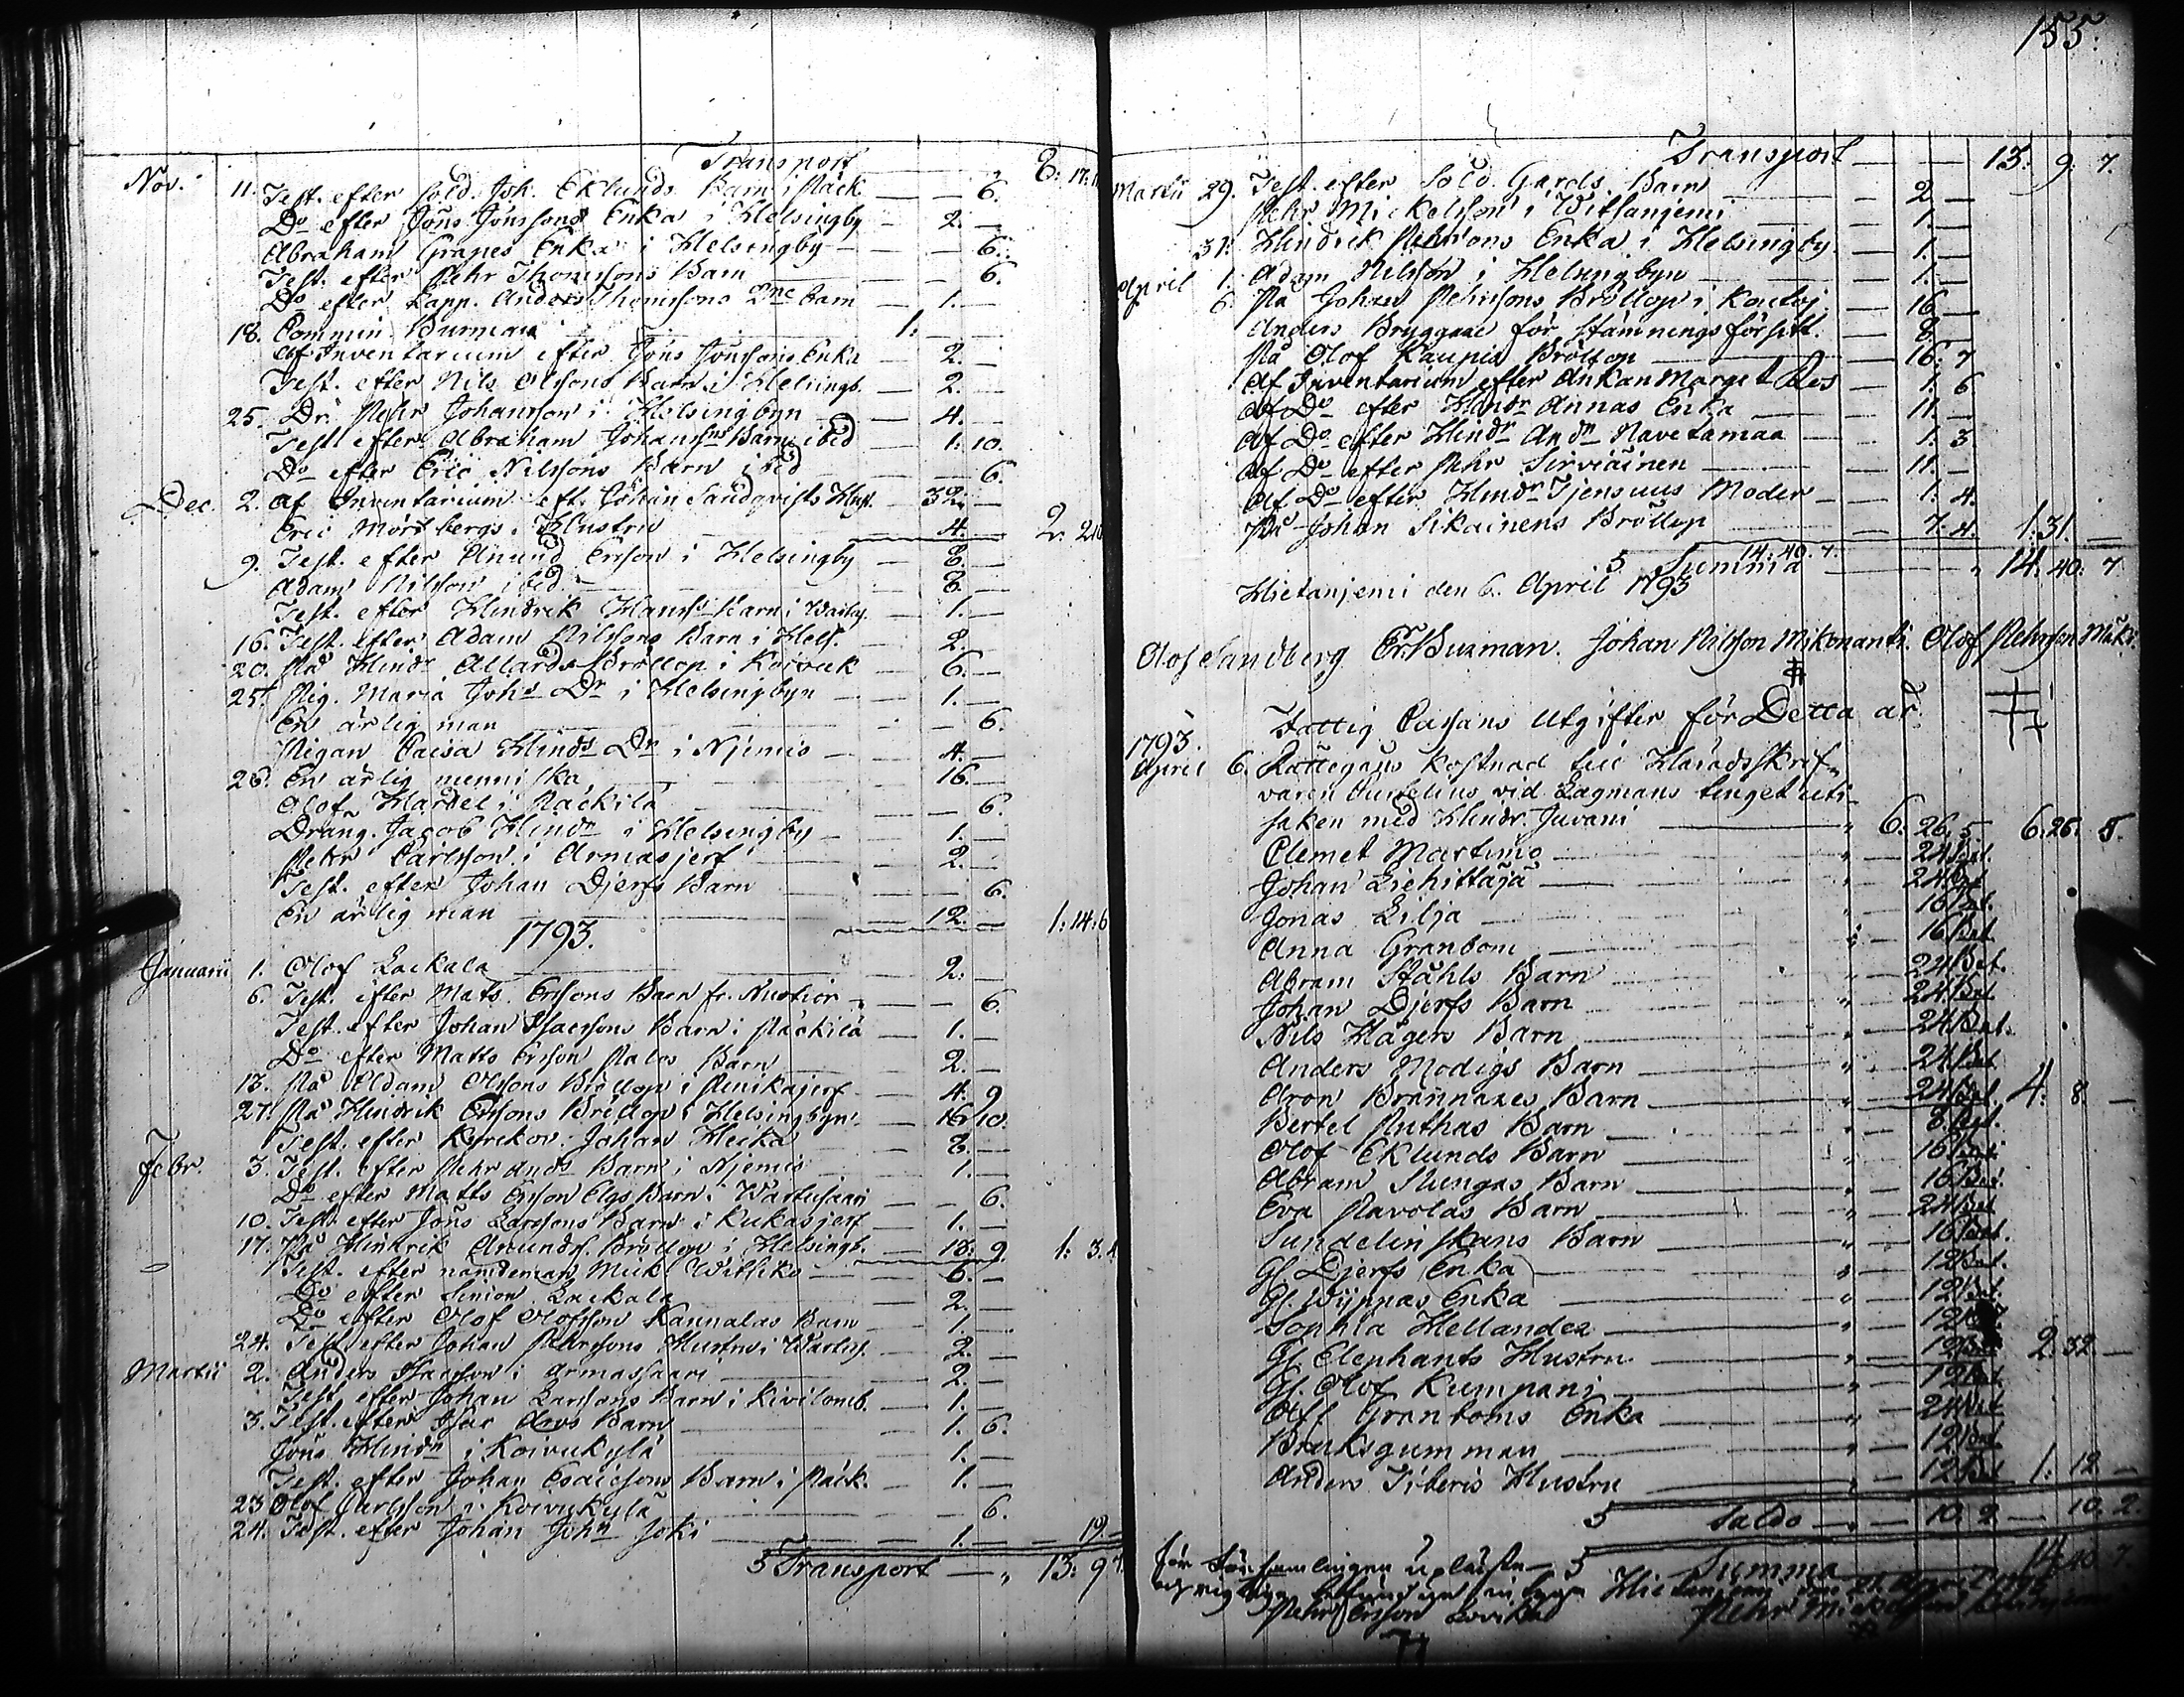 Transport 8: 17:
Nov. 11. Test. efter Sold. Joh. Eklunds Barn i Päck — — 6.
Do efter Jöns Jönssons Enka i Helsingby — 2. —
Abraham Grapes Enka i Helsingby — — 6.
Test. efter Pehr Thomssons Barn — — 6.
Do efter Lapp. Anders Thomssons 2ne barn — 1. —
18. Commin. Burman 1: — —
Af Inventarium efter Jöns Jönssons Enka — 2. —
Test. efter Nils Olssons Barn i Helsingb. — 2. —
25. Dr. Pehr Johansson i Helsingbyn — 4. —
Test. efter Abraham Johanss. Barn ibid — 1. 10.
Do efter Eric Nilssons Barn ibid — — 6.
Dec. 2. af Inventarium eft. Johan Sandqvists Hust. — 32. —
Eric Mortbergs Hustru — 4. — 2. 2
9. Test. efter Anund Ersson i Helsingby — 8. —
Adam Nilsson ibid — 8. —
Test. efter Hindrik Hanss. Barn i — 1. —
16. Test. efter Adam Nilssons Barn i Hels. — 2. —
20. På Hindr. Allards Bröllop i Koivuk — 6. —
25. Pig. Maria Johs Dr i Helsingbyn — 1. —
En ärlig man — — 6.
Pigan Caisa Hinds Dr i Njemis — 4. —
26. En ärlig menniska — 16. —
Olof Hardel i Päckilä — — 6.
Dräng. Jacob Hindn i Helsingby — 1. —
Pehr Carlsson i Armasjerf — 2. —
Test. efter Johan Djerfs Barn — — 6.
En ärlig man — 12. — 1: 14: 6
1793.
Januarii 1. Olof Lackala — 2. —
6. Test. efter Mats Erssons Barn fr. — — 6.
Test. efter Johan Isacssons Barn i Päckilä — 1. —
Do efter Matts Ersson Palos Barn — 2. —
13. På Adam Olssons Bröllop i — 4. 9
27. På Hindrik Erssons Bröllop i Helsingbyn — 16. 10.
Test. efter Kyrkov. Johan Hecka — 8. —
Febr. 3. Test. efter Pehr Ands Barn i Njemis — 1. —
Do efter Matts Ersson Elgs Barn i — — 6.
10. Test. efter Jöns Larssons Barn i Kukasjerf — 1. —
17. På Hindrik Anunds. Bröllop i Helsingb. — 18: 9 1: 3.
Test. efter nämdeman Mick. — 6. —
Do efter Simon Lackala — 2. —
Do efter Olof Olofsson Kannalas Barn — 1. —
24. Test. efter Johan Hustru i — 2. —
Martii 2. Anders Isacsson i Armassaari — 2. —
Test. efter Johan Larssons Barn i Kivilomb. — 1. —
3. Test. efter Isac Barn — 1. 6.
Jöns Hindn i Koivukylä — 1. —
Test. efter Johan Esaiessons Barn i Päck. — 1. —
23 Olof Carlsson i Koivukylä — — 6.
24. Test. efter Johan John Joki — 1. — — 19. —
S Transport — „ 13: 9
155.
Transport — — 13: 9. 7.
Martii 29. Test. efter Sold. Gards Barn — 2. —
Pehr Mickelsson i — 1. —
31. Hindrik Pehrsons Enka i Helsingby — 1. —
April 1. Adam Nilsson i Helsingbyn — 1. —
6. På Johan Pehrssons Bröllop i — 16. —
Anders Bryggare för stämnings försitt. — 8. —
På Olof Kaupis Bröllop — 16: 7
Af Inventarium efter Änkan Margeta — 1. 6
Af Do efter Hindr Annas Enka — 11. —
Af Do efter Hindr Andn Navetamaa — 1. 3
Af Do efter Pehr Sirviäinen — 11. —
Af Do efter Hindr Tjensuus Moder — 1. 4.
På Johan Sikainens Bröllop — 7. 4. 1: 31. —
14: 40. 7.
S Summa — „ 14. 40: 7
Hietanjemi den 6. April 1793
Olof Sandberg Er. Burman. Johan Nilsson Mikonanti. Olof Pehrsson Mäki.
Fattig Cassans Utgifter för Detta år.
1793.
April 6. Rättegåns kostnad till Häradsskrif-
varen Aurelius vid Lagmans tinget uti
saken med Hindr. Juvani — „ 6. 26. 5. 6: 26: 5.
Clemet Martimo — „ — 24 Bet.
Johan Liehittäjä — „ — 24 Bet
Jonas Lilja — „ — 16 Bet.
Anna Granbom — „ — 16 Bet
Abram Ståhls Barn — „ — 24 Bet.
Johan Djerfs Barn — „ — 24 Bet
Nils Hägers Barn — „ — 24 Bet.
Anders Modigs Barn — „ — 24 Bet
Aron Brännares Barn — „ — 24 Bet. 4: 8. —
Bertel Ruthas Barn — „ — 8 Bet.
Olof Eklunds Barn — „ — 16 Bet
Abram Barn — „ — 16 Bet.
Eva Pavolas Barn — „ — 24 Bet
Sundelinskans Barn — „ — 16 Bet.
Gl. Djerfs Enka — „ — 12 Bet.
Gl. Wyppas Enka — „ — 12 Bet.
Sophia Hellander — „ — 12
Gl. Elephants Hustru — „ — 12 Bet 2: 32. —
Gl. Olof Kumpani — „ — 12 Bet
Aff. Granboms Enka — „ — 24 Bet
Bruksgumman — „ — 12 Bet
Anders Tiberis Hustru — „ — 12 Bet 1: 12 —
S Saldo — „ — 10. 2 — 10. 2.
S Summa 14 40 7.
för församlingen upläste
Hietanjemi den April 1793
Pehr Ersson
Pehr Mickelsson